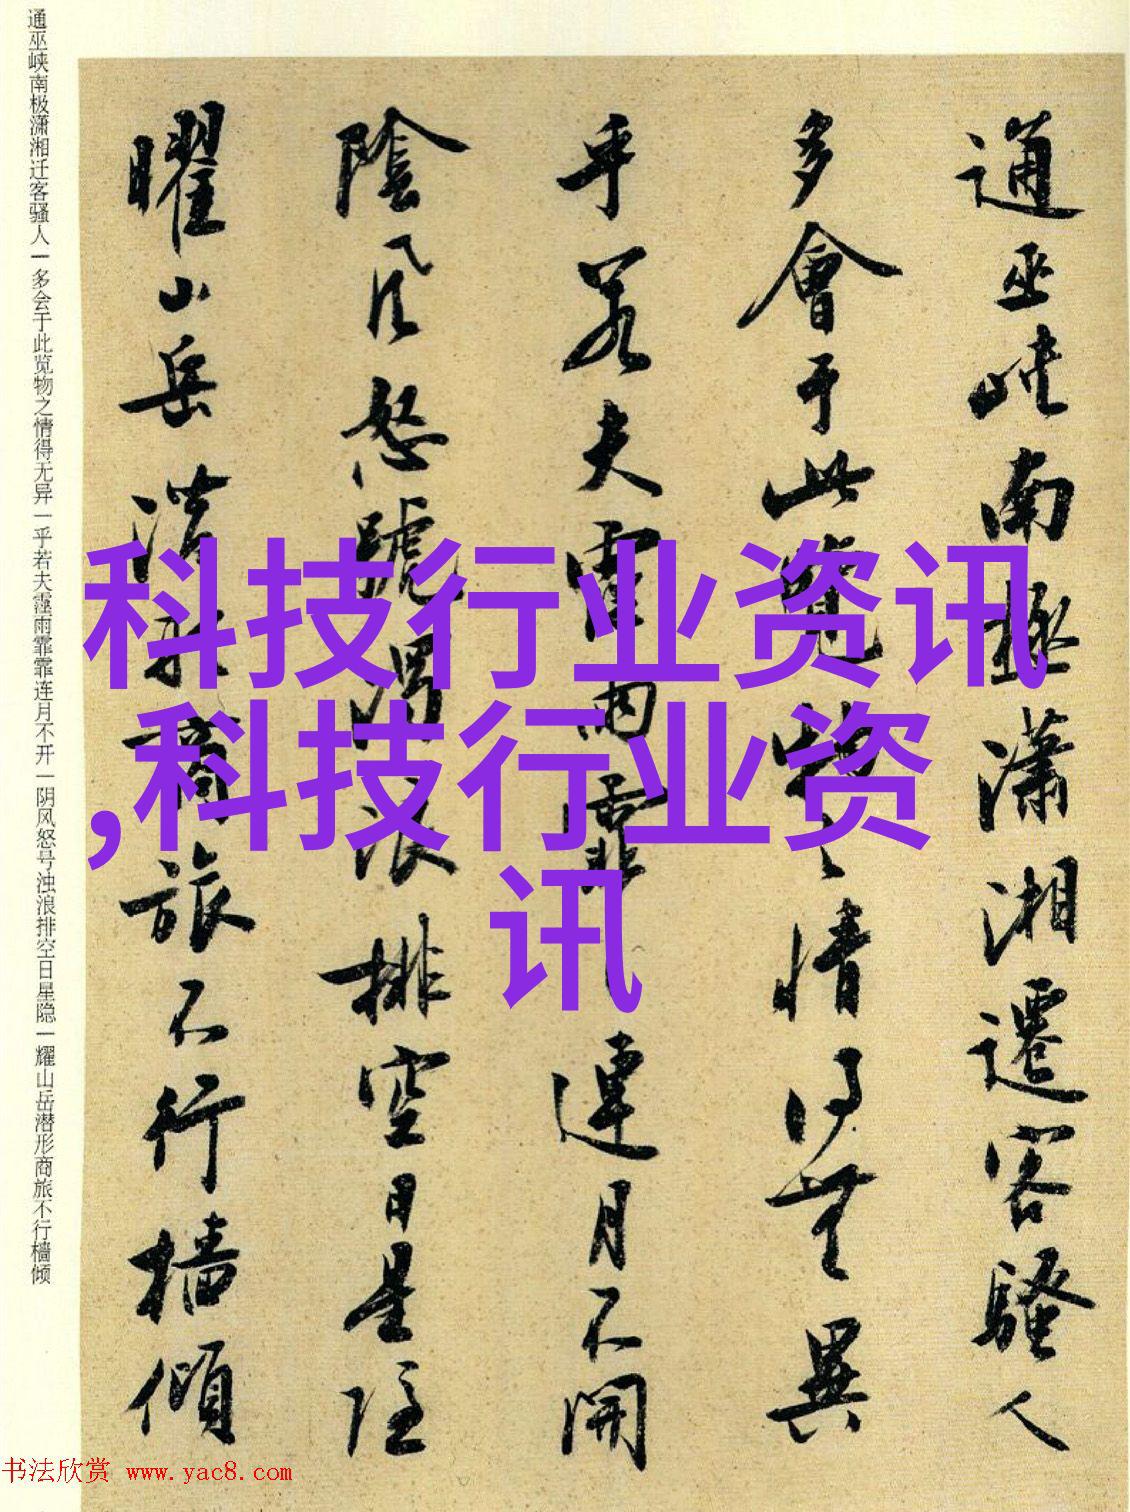 通巫峡南極瀟湘遷客騷人
多會于此覽物之情得無異
乎若夫霪雨霏霏連月不開
陰風怒號濁浪排空日星隱
曜山岳潛形商旅不行檣傾
通巫峡南极潇湘迁客骚人|多会于此览物之情得无异|乎若夫霪雨霏霏连月不开|阴风怒号浊浪排空日星隐|耀山岳潜形商旅不行樯倾
科技行业资讯
,科技行业资
讯
书法欣赏 www.yac8.com